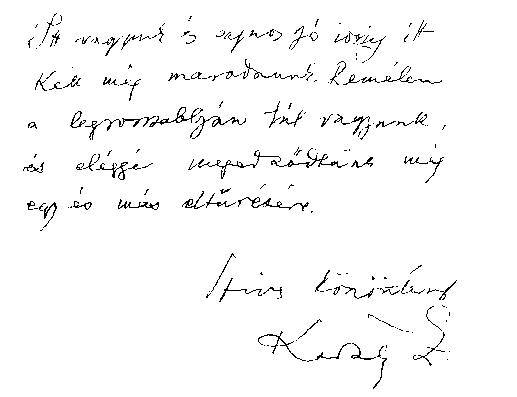 itt vagyunk és sajnos jó ideig itt
kell még maradnunk. Remélem
a legrosszabbján túl vagyunk,
és eléggé megedződtünk még
egy és más eltűrésére.
Szives köszöntéssel